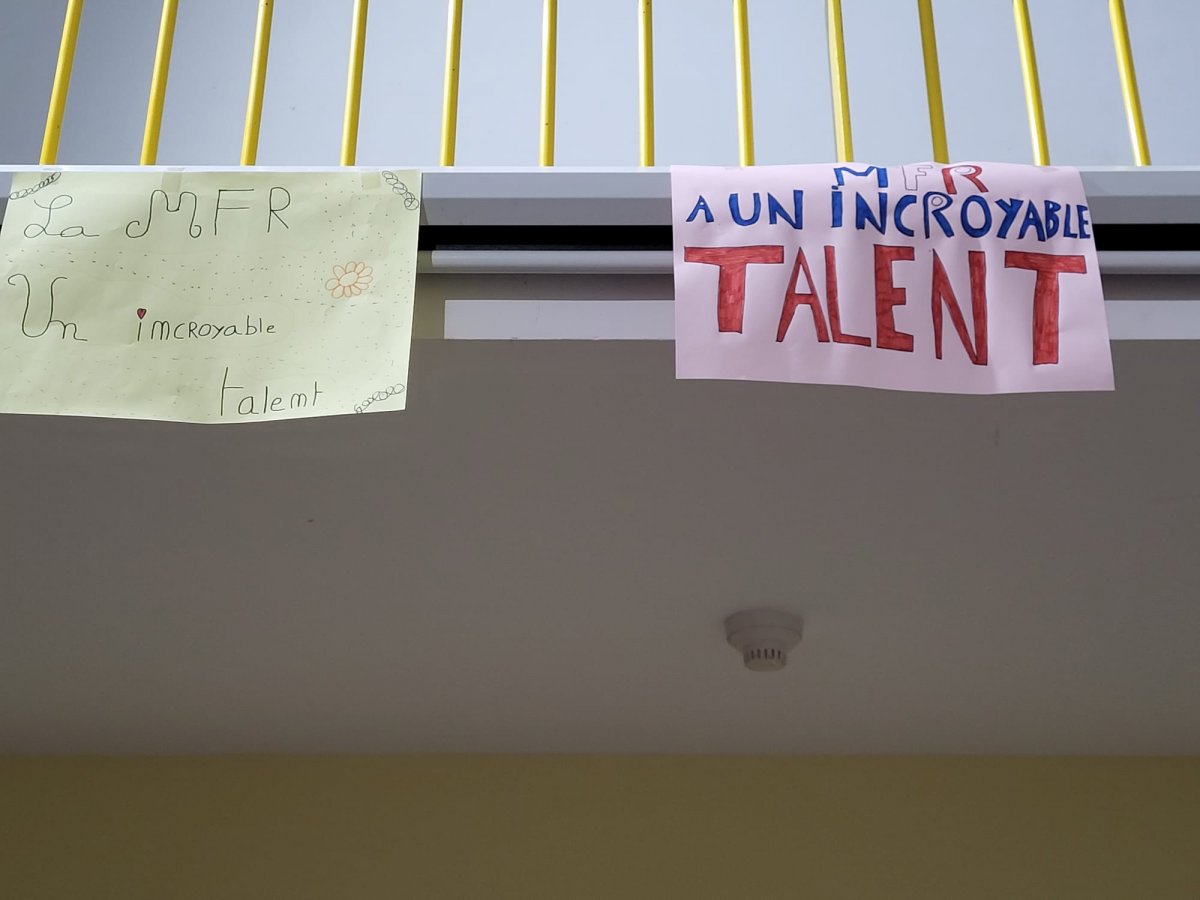 La MFR
Un imcroyable
talemt
MFR
A UN INCROYABLE
TALENT